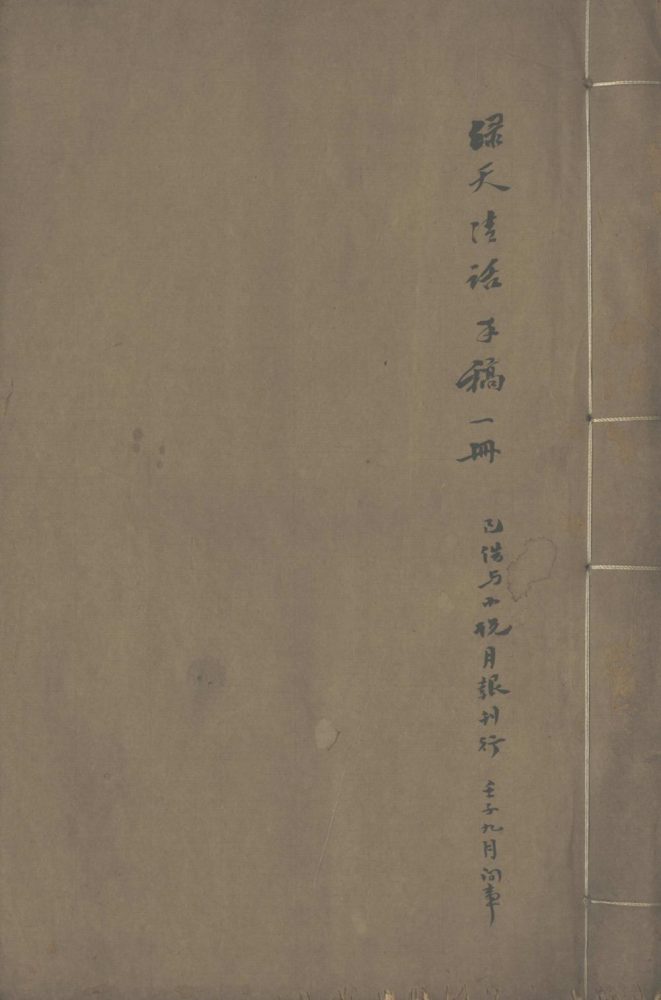 綠天清話手稿一冊 已借与小說月報刊行 壬子九月